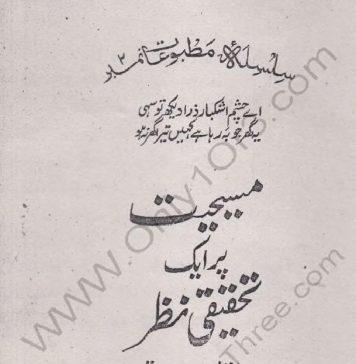 سلسلۂ مطبوعات نمبر ۲
اے چشم اشکبار ذرا دیکھ تو سہی
یہ گھر جو بہہ رہا ہے کہیں تیرا گھر نہ ہو
مسیحیت
پر ایک
تحقیقی نظر
www.Only1Or3.com
Three.com